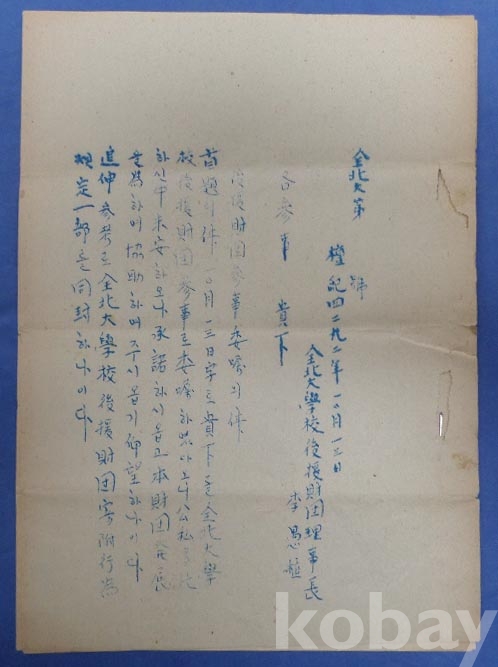 全北大第　　號
檀紀四二九二年一〇月一三日
全北大學校後援財团理事長
李 植
各參事　貴下
後援財团參事委嘱의件
首題의件 一〇月一三日字로 貴下를 全北大學
校後援財团 參事로 委嘱하였아오니 公私多忙
하신中 未安하오나 承諾하시옵고 本財团發展
을 爲하여 協助하여 주시옵기 仰望하나이다
追伸 參考로 全北大學校後援財团寄附行為
規定一部를 同封하나이다
kobay